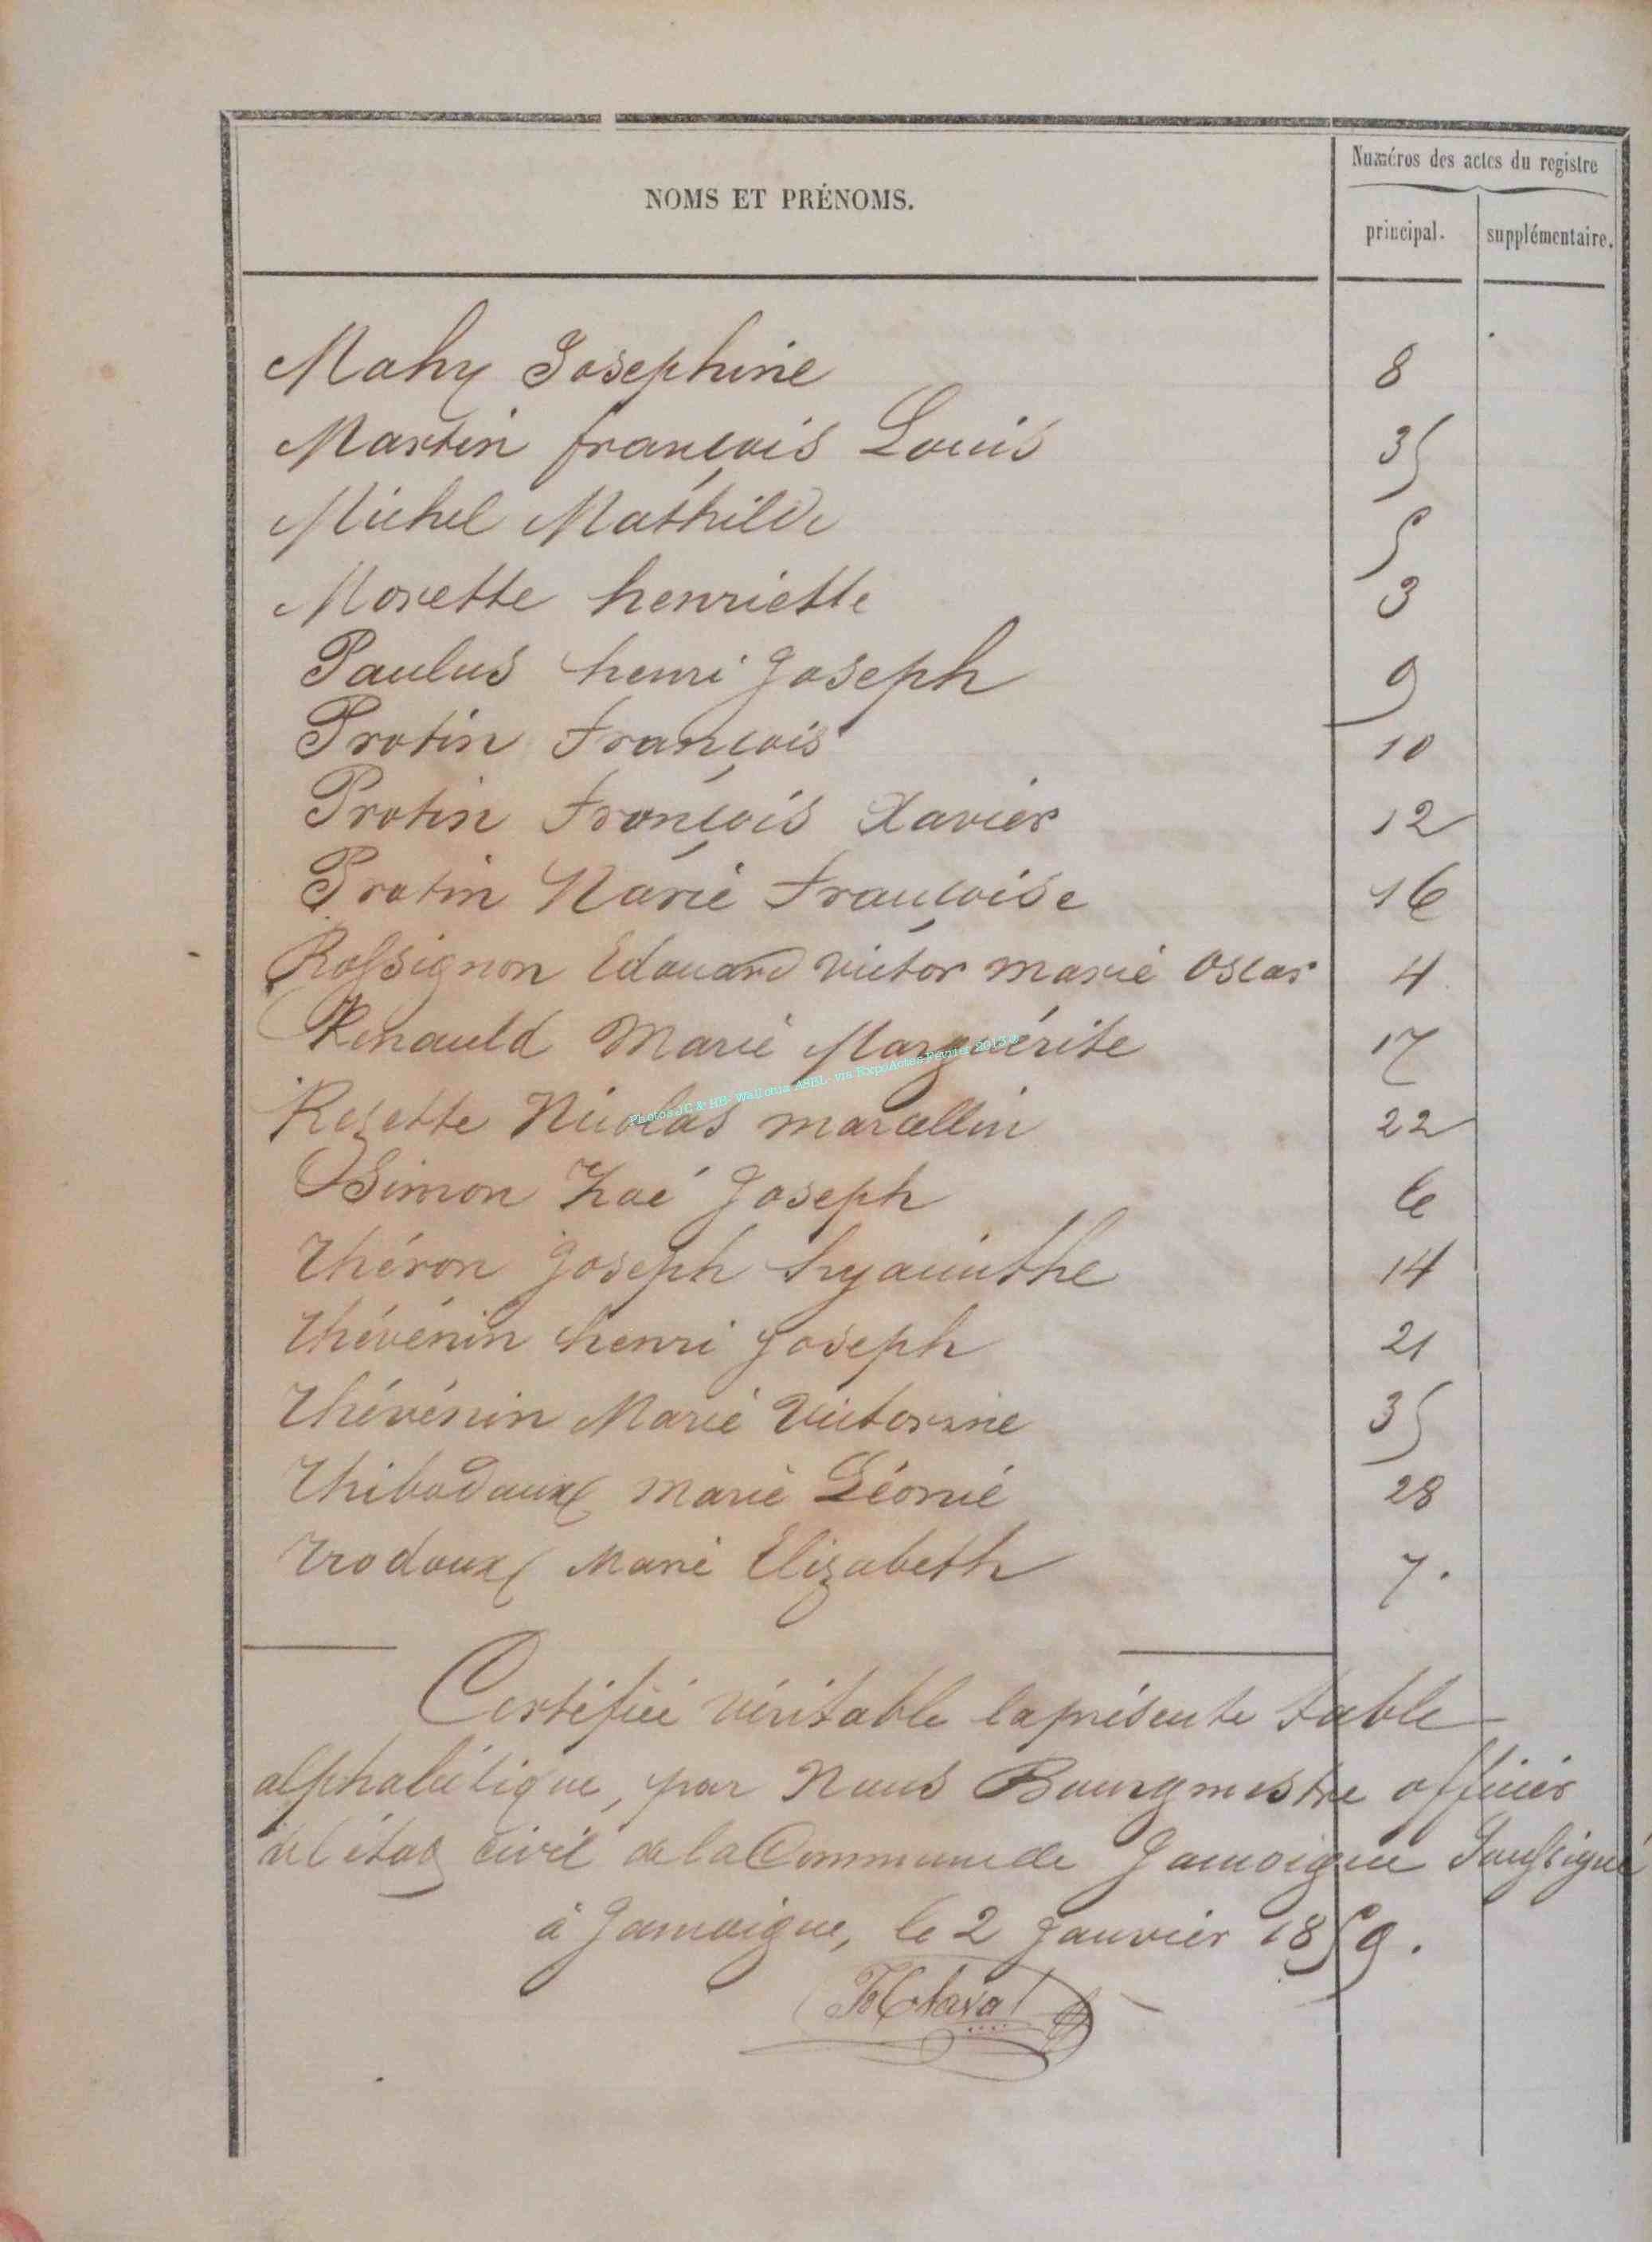 Numéros des actes du registre
NOMS ET PRÉNOMS.
principal. supplémentaire.
Mahy Josephine 8
Martin françois Louis 35
Michel Mathilde 5
Morette henriette 3
Paulus henri Joseph 9
Protin François 10
Protin François Xavier 12
Protin Marie Françoise 16
Rossignon Edouard victor marie Oscar 4
Renauld Marie Marguérite 17
Rezette Nicolas marcellin 22
Simon Zoé Joseph 6
Théron Joseph hyacinthe 14
Thévénin henri Joseph 21
Thévénin Marie Victorine 35
Thibodaux marie Léonie 28
Trodoux Marie Elizabeth 7.
Certifiée véritable la présente table
alphabétique, par Nous Bourgmestre officier
de l'état civil de la Commune de Jamoigne Soussigné
à Jamoigne, le 2 Janvier 1859.
Photos JC & HB- Wallonia ASBL- via ExpoActes Février 2015 ©